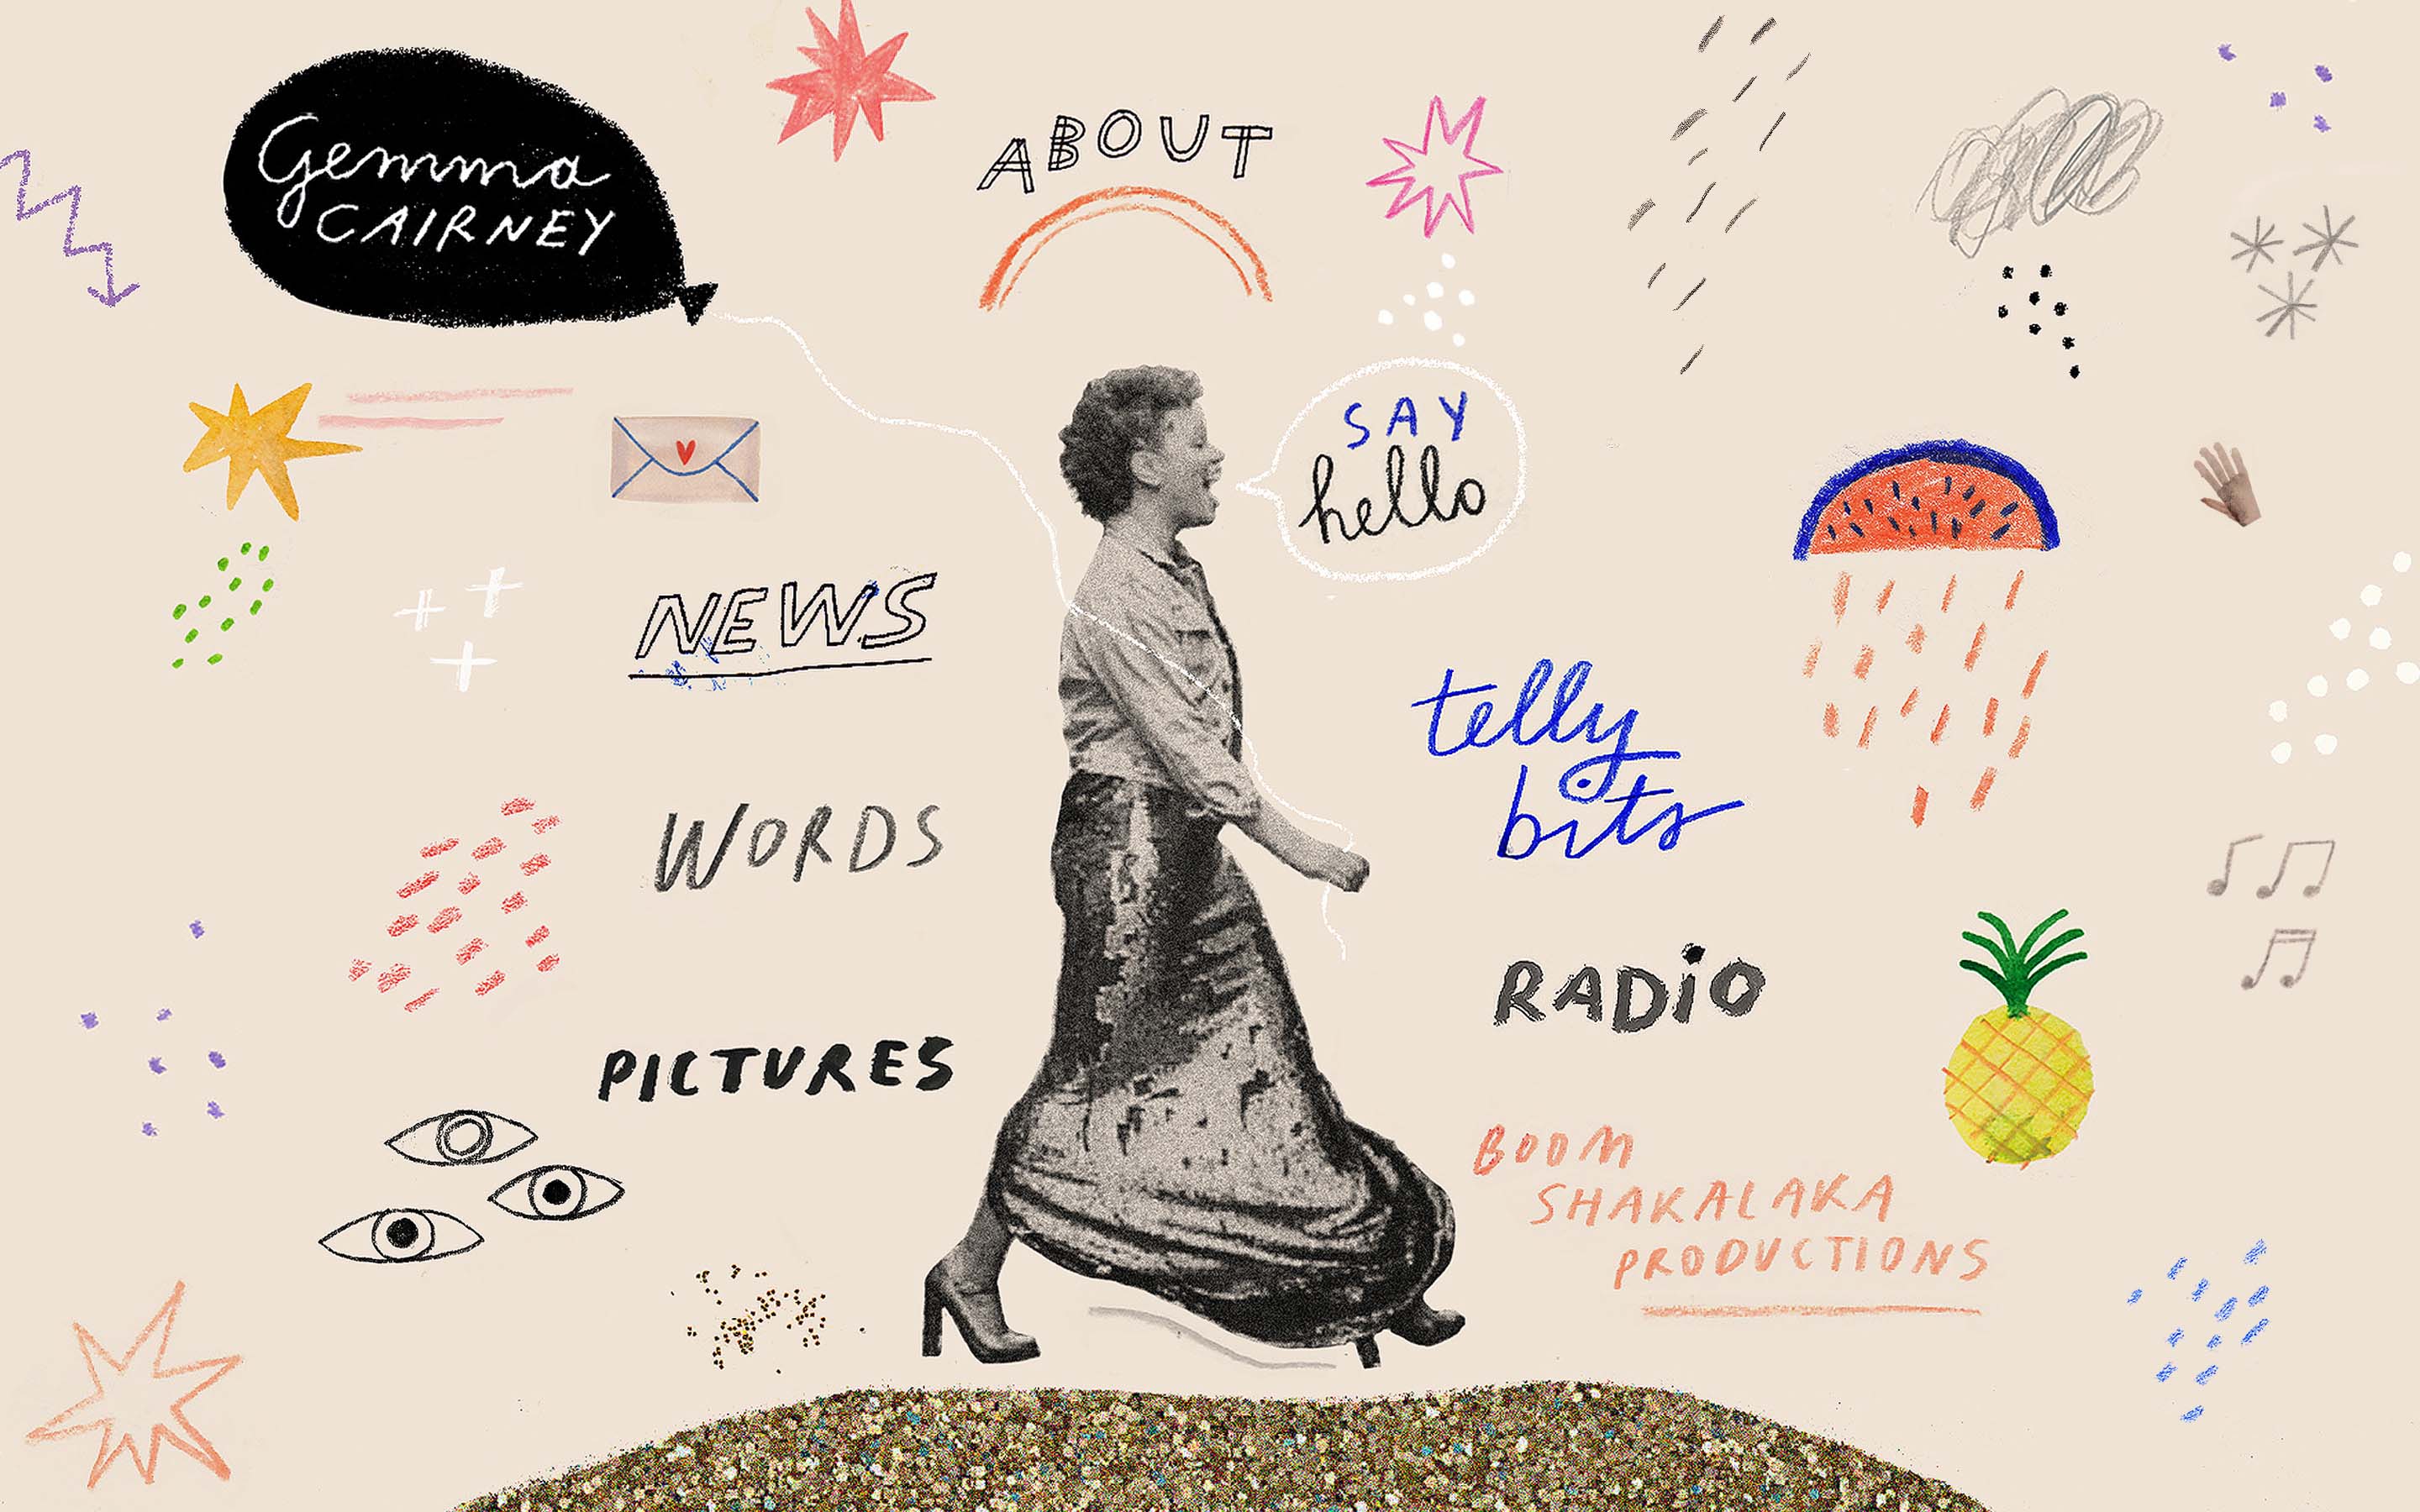 Gemma
CAIRNEY
ABOUT
SAY
hello
NEWS
telly
bits
WORDS
RADiO
PICTURES
BOOM
SHAKALAKA
PRODUCTIONS